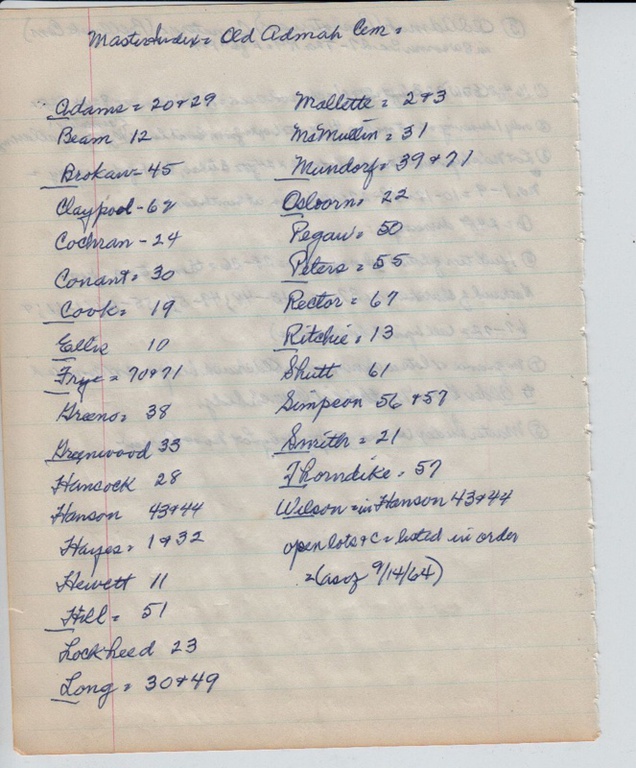 Master Index = Old Admah Cem =
Adams = 20 & 29
Beam 12
Brokaw = 45
Claypool - 62
Cochran - 24
Conant = 30
Cook = 19
Ellis 10
Frye = 70 & 71
Greeno = 38
Greenwood 33
Hancock 28
Hanson 43 & 44
Hayes = 1 & 32
Hewett 11
Hill = 51
Lockheed 23
Long = 30 & 49
Mallette = 2 & 3
McMullin = 31
Mundorf = 39 & 71
Osborn = 22
Pegau = 50
Peters = 55
Rector = 67
Ritchie = 13
Shutt 61
Simpson 56 & 57
Smith = 21
Thorndike = 57
Wilson = in Hanson 43 & 44
open lots & C = listed in order
= (as of 9/14/64)